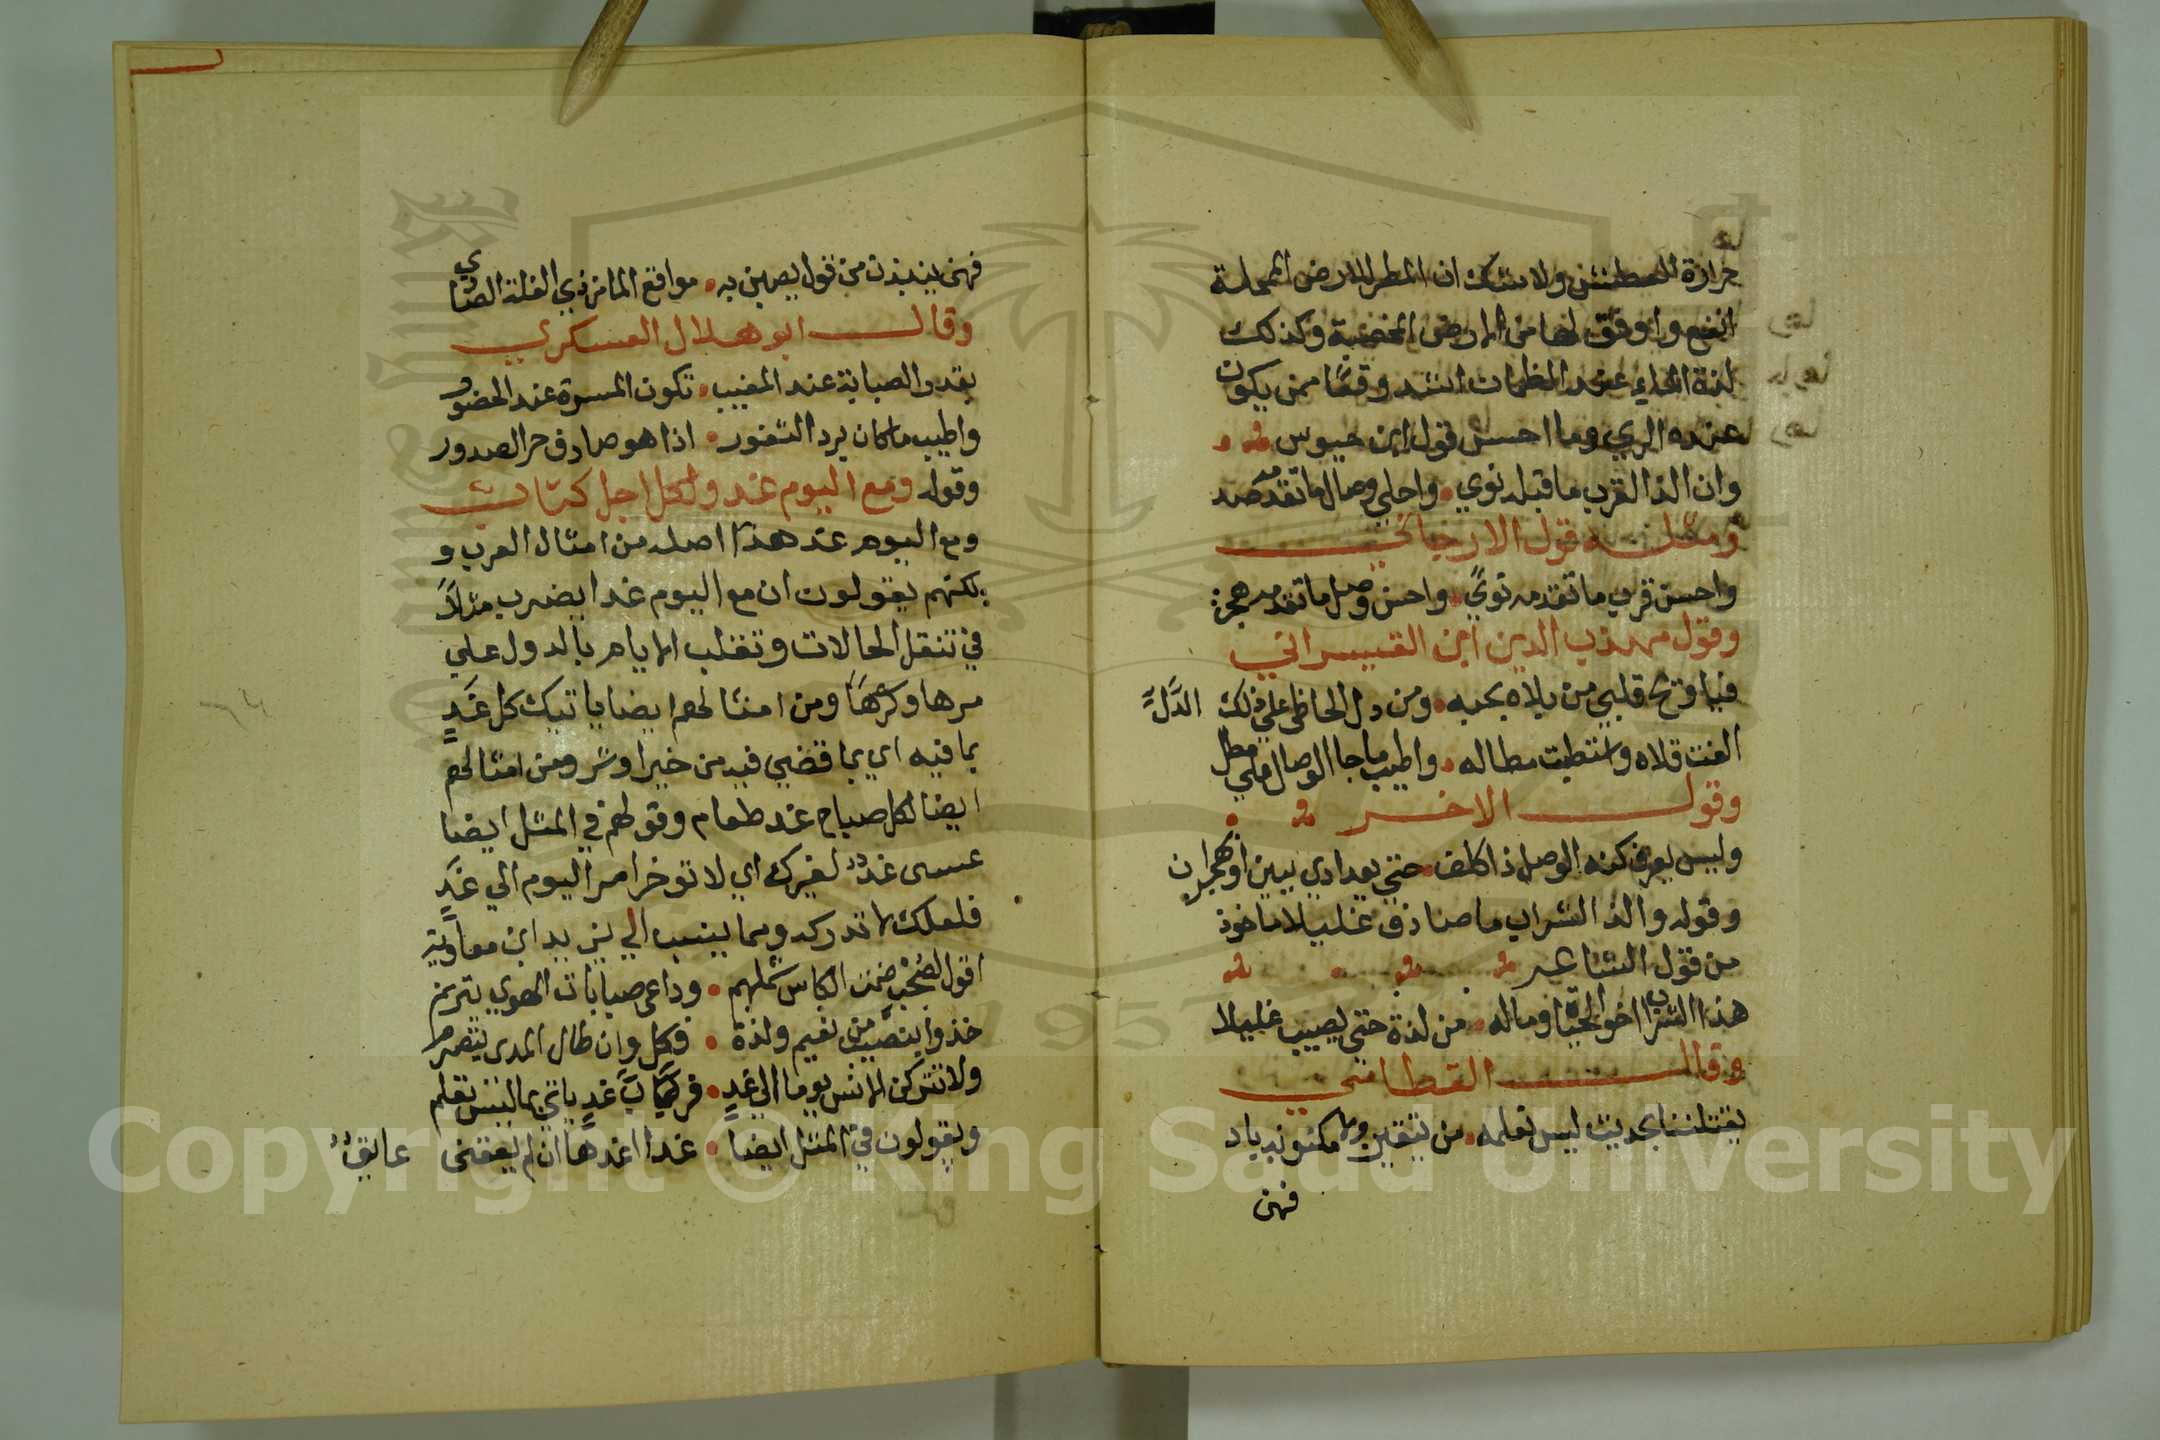 حرارة العطش ولا شك ان المطر للارض الممحلة
انفع واوفق لها من الارض المخصبة وكذلك
لذة الماء عند الظمان اشد وقعًا ممن يكون
عنده الري وما احسن قول ابن حيوس
وان الذ القرب ما قبله نوي • واحلي وصال ما تقدمه صد
ومثله قول الارجاني
واحسن قرب ما تقدمه نويً • واحسن وصل ما تقدمه هجر
وقول مهذب الدين ابن القيسراني
فيا فرح قلبي من بلاه بحبه • ومن دل الحاظي علي ذلك الدَّلِّ
الفت قلاه واستطبت مطاله • واطيب ما جا الوصال علي مطل
وقول الاخر
وليس يعرف كنه الوصل ذا كلف • حتي يعدادي ببين او هجران
وقوله والذ الشراب ما صادف غليلا ماخوذ
من قول الشاعر
هذا الشراب اخو الحياة وماله • من لذة حتي يصيب غليلا
وقال القطامي
يقتلننا بحديث ليس تعلمه • من يتقين ولا مكنونه باد
فهن
فهن ينبذن من قول يصبن به • مواقع الما من ذي الغلة الصادي
وقال ابو هلال العسكري
بقدر الصبابة عند المغيب • تكون المسرة عند الحضور
واطيب ما كان برد الثغور • اذا هو صادف حر الصدور
وقوله ومع اليوم غد ولكل اجل كتاب
ومع اليوم غد هذا اصله من امثال العرب و
لكنهم يقولون ان مع اليوم غدا يضرب مثلاً
في تنقل الحالات وتقلب الايام بالدول علي
مرها وكرهًا ومن امثالهم ايضا ياتيك كل غدٍ
بما فيه اي بما قضي فيه من خير او شر ومن امثالهم
ايضا لكل صباح غد طعام وقولهم في المثل ايضا
عسى غدٌ لغيرك اي لا توخر امر اليوم الي غدٍ
فلعلك لا تدركه ومما ينسب الي يزيد ابن معاوية
اقول لصَحْبٍ ضمت الكاس شملهم • وداعي صبابات الهوي يترنم
خذوا بنصيب من نعيم ولذة • فكل وان طال المدى يتصرم
ولا تتركن الانس يوما الي غدٍ • فرب غدٍ ياتي بما ليس تعلم
ويقولون في المثل ايضا • غدا اغدها ان لم يعقني عايق